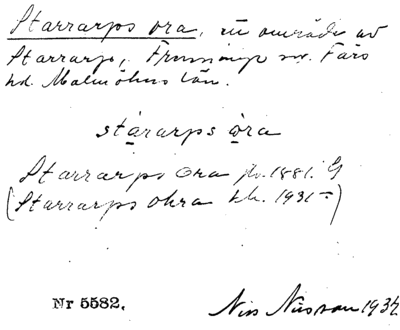 Starrarps ora, nu område av
Starrarp, sn. Färs
hd. Malmöhus län.
stárarps òra
Starrarps Ora 1881. G
(Starrarps Ohra 1931 =)
Nr 5582.
Nils Nilsson 1934